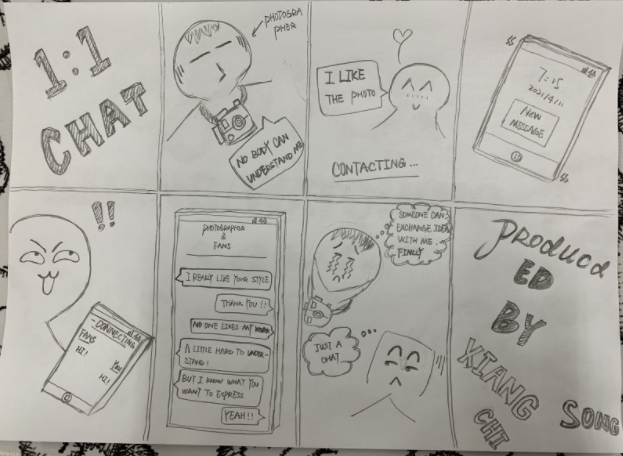 1:1
CHAT
PHOTOGRA
PHER
NO BODY CAN
UNDERSTAND ME
I LIKE
THE PHOTO
CONTACTING...
7:15
2021/9/11
NEW
MESSAGE
!!
- CONNECTING
FANS
HI!
YOU
HI!
PHOTOGRAPHER
&
FANS
I REALLY LIKE YOUR STYLE
THANK YOU!!
NO ONE LIKES MY WORK
A LITTLE HARD TO UNDER-
STAND!
BUT I KNOW WHAT YOU
WANT TO EXPRESS
YEAH!!
SOMEONE CAN
EXCHANGE IDEA
WITH ME,
FINALLY
JUST A
CHAT
PRODUCD
ED
BY
XIANG
CHI
SONG